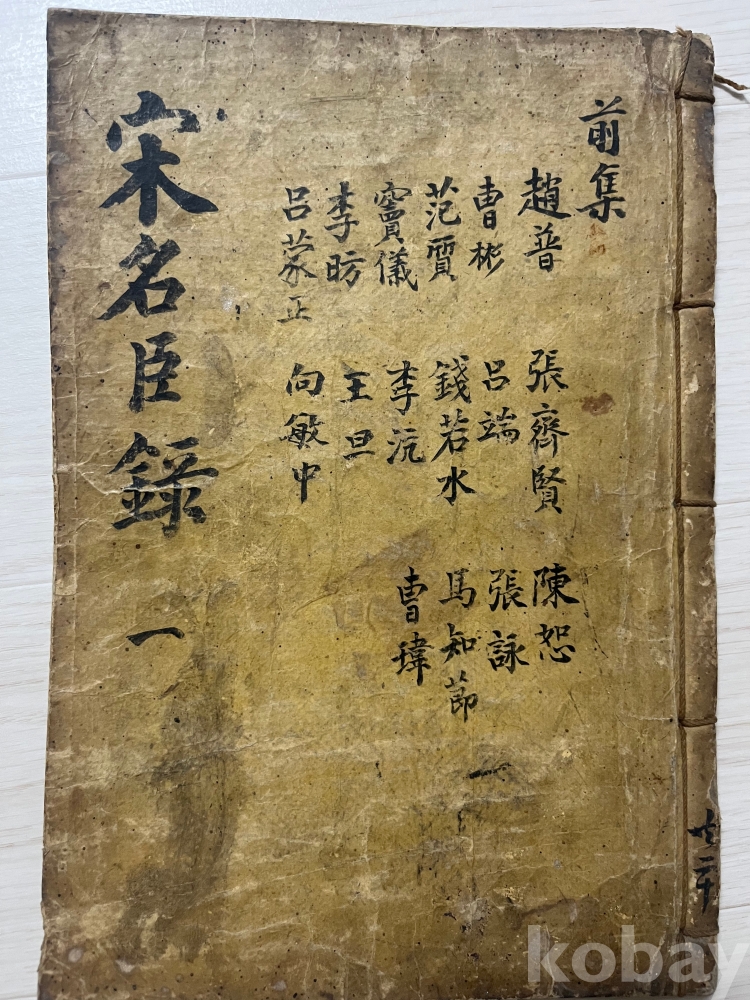 共二十
前集
趙普
曹彬
范質
竇儀
李昉
呂蒙正
張齊賢
呂端
錢若水
李沆
王旦
向敏中
陳恕
張詠
馬知節
曹瑋
宋名臣錄 一
kobay